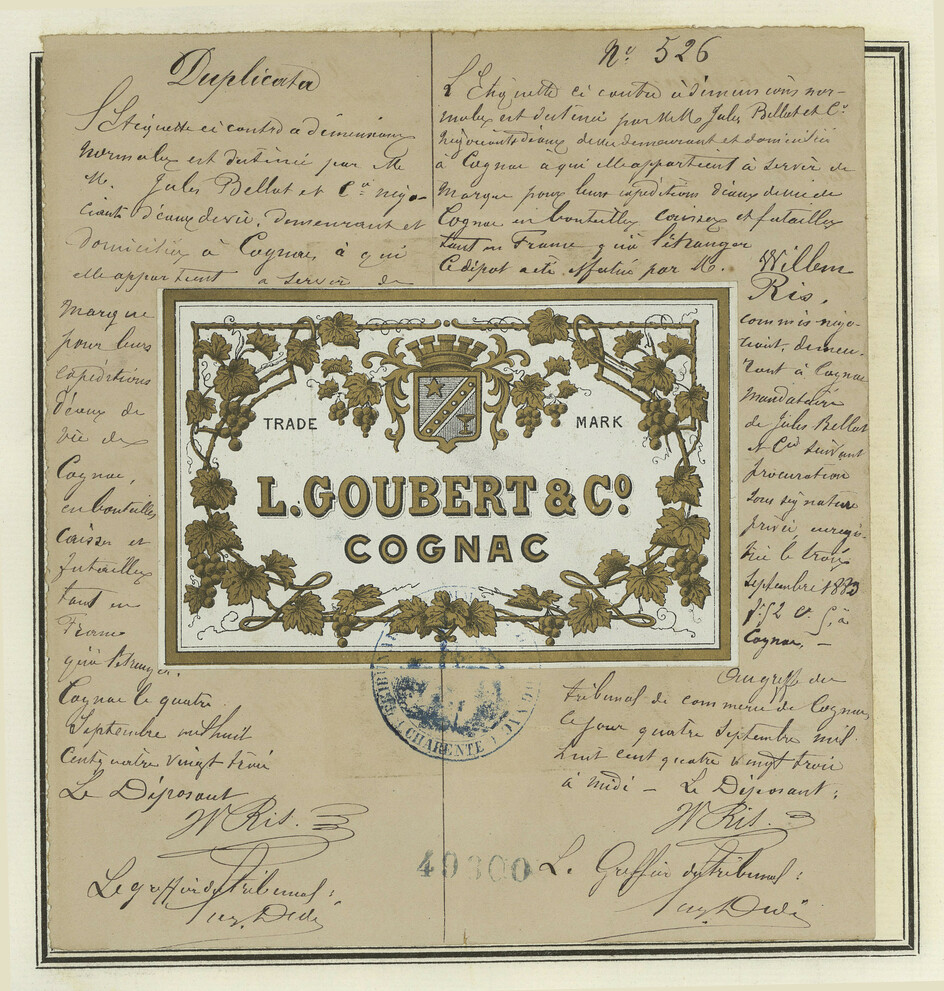 Duplicata
L'Etiquette ci contre a dimensions
normales est destinée par M
M. Jules Bellot et Cie négo-
ciants d'eaux de vie, demeurant et
domiciliés à Cognac, à qui
elle appartient a servir de
Marque
pour leurs
expéditions
d'eaux de
vie de
Cognac,
en bouteilles
caisses et
futailles
tant en
France
qu'à l'étranger.
Cognac le quatre
Septembre mil huit
cent quatre vingt trois
Le Déposant
W Ris.
Le greffier du tribunal :
No 526
L'Etiquette ci contre a dimensions nor-
males est destinée par M.M. Jules Bellot et Cie
négociants d'eaux de vie demeurant et domiciliés
à Cognac a qui elle appartient à servir de
Marque pour leurs expéditions d'eaux de vie de
Cognac en bouteilles caisses et futailles
tant en France qu'à l'étranger
Ce dépot a été effectué par M. Willem
Ris,
commis négo-
ciant, demeu-
rant à Cognac
mandataire
de Jules Bellot
et Cie suivant
procuration
sous signature
privée enregis-
trée le trois
Septembre 1883
Cognac, -
Au greffe du
tribunal de commerce de Cognac
ce jour quatre Septembre mil
huit cent quatre vingt trois
à midi - Le Déposant :
W Ris.
Le Greffier du tribunal :
TRADE MARK
L. GOUBERT & Co.
COGNAC
(CHARENTE)
49300